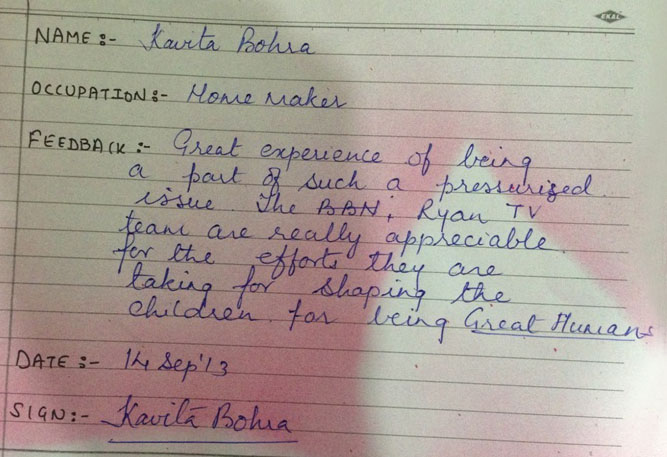 NAME :- Kavita Bohra
OCCUPATION :- Home maker
FEEDBACK :- Great experience of being
a part of such a pressurised
issue. The BBN, Ryan TV
team are really appreciable
for the efforts they are
taking for shaping the
children for being Great Humans
DATE :- 14 Sep'13
SIGN :- Kavita Bohra